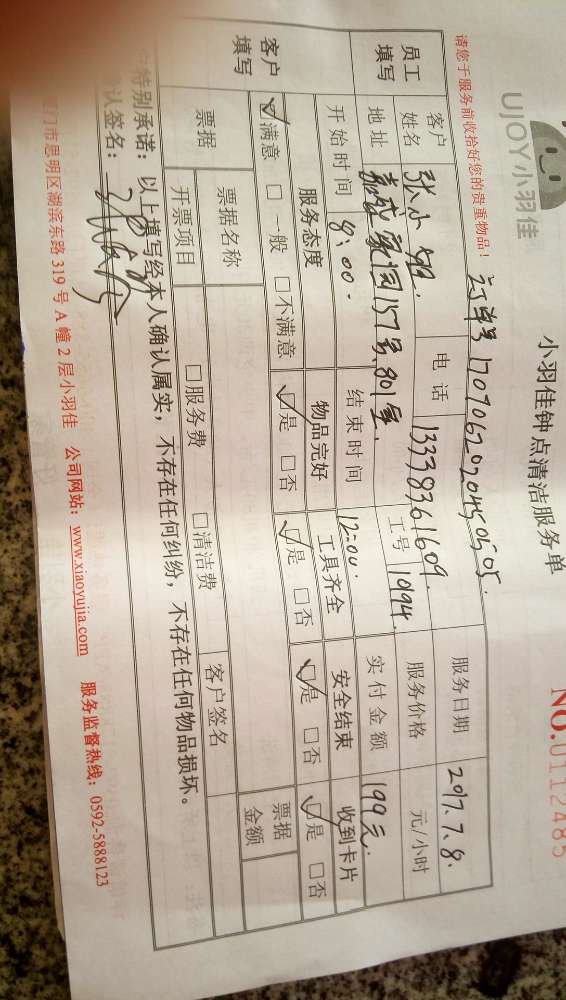 UJOY小羽佳
小羽佳钟点清洁服务单
NO.0112485
请您于服务前收拾好您的贵重物品!
员工填写
客户姓名 张小姐. 电话 13338361609. 服务日期 2017.7.8.
地址 157号801室. 工号 1094. 服务价格 元/小时
开始时间 8:00. 结束时间 12:00. 实付金额 199元.
客户填写
服务态度 物品完好 工具齐全 安全结束 收到卡片
☑满意 □一般 □不满意 ☑是 □否 ☑是 □否 ☑是 □否 ☑是 □否
票据 票据名称 客户签名 票据金额
开票项目 □服务费 □清洁费
特别承诺:以上填写经本人确认属实,不存在任何纠纷,不存在任何物品损坏。
认签名:
门市思明区湖滨东路319号A幢2层小羽佳 公司网站:www.xiaoyujia.com 服务监督热线:0592-5888123